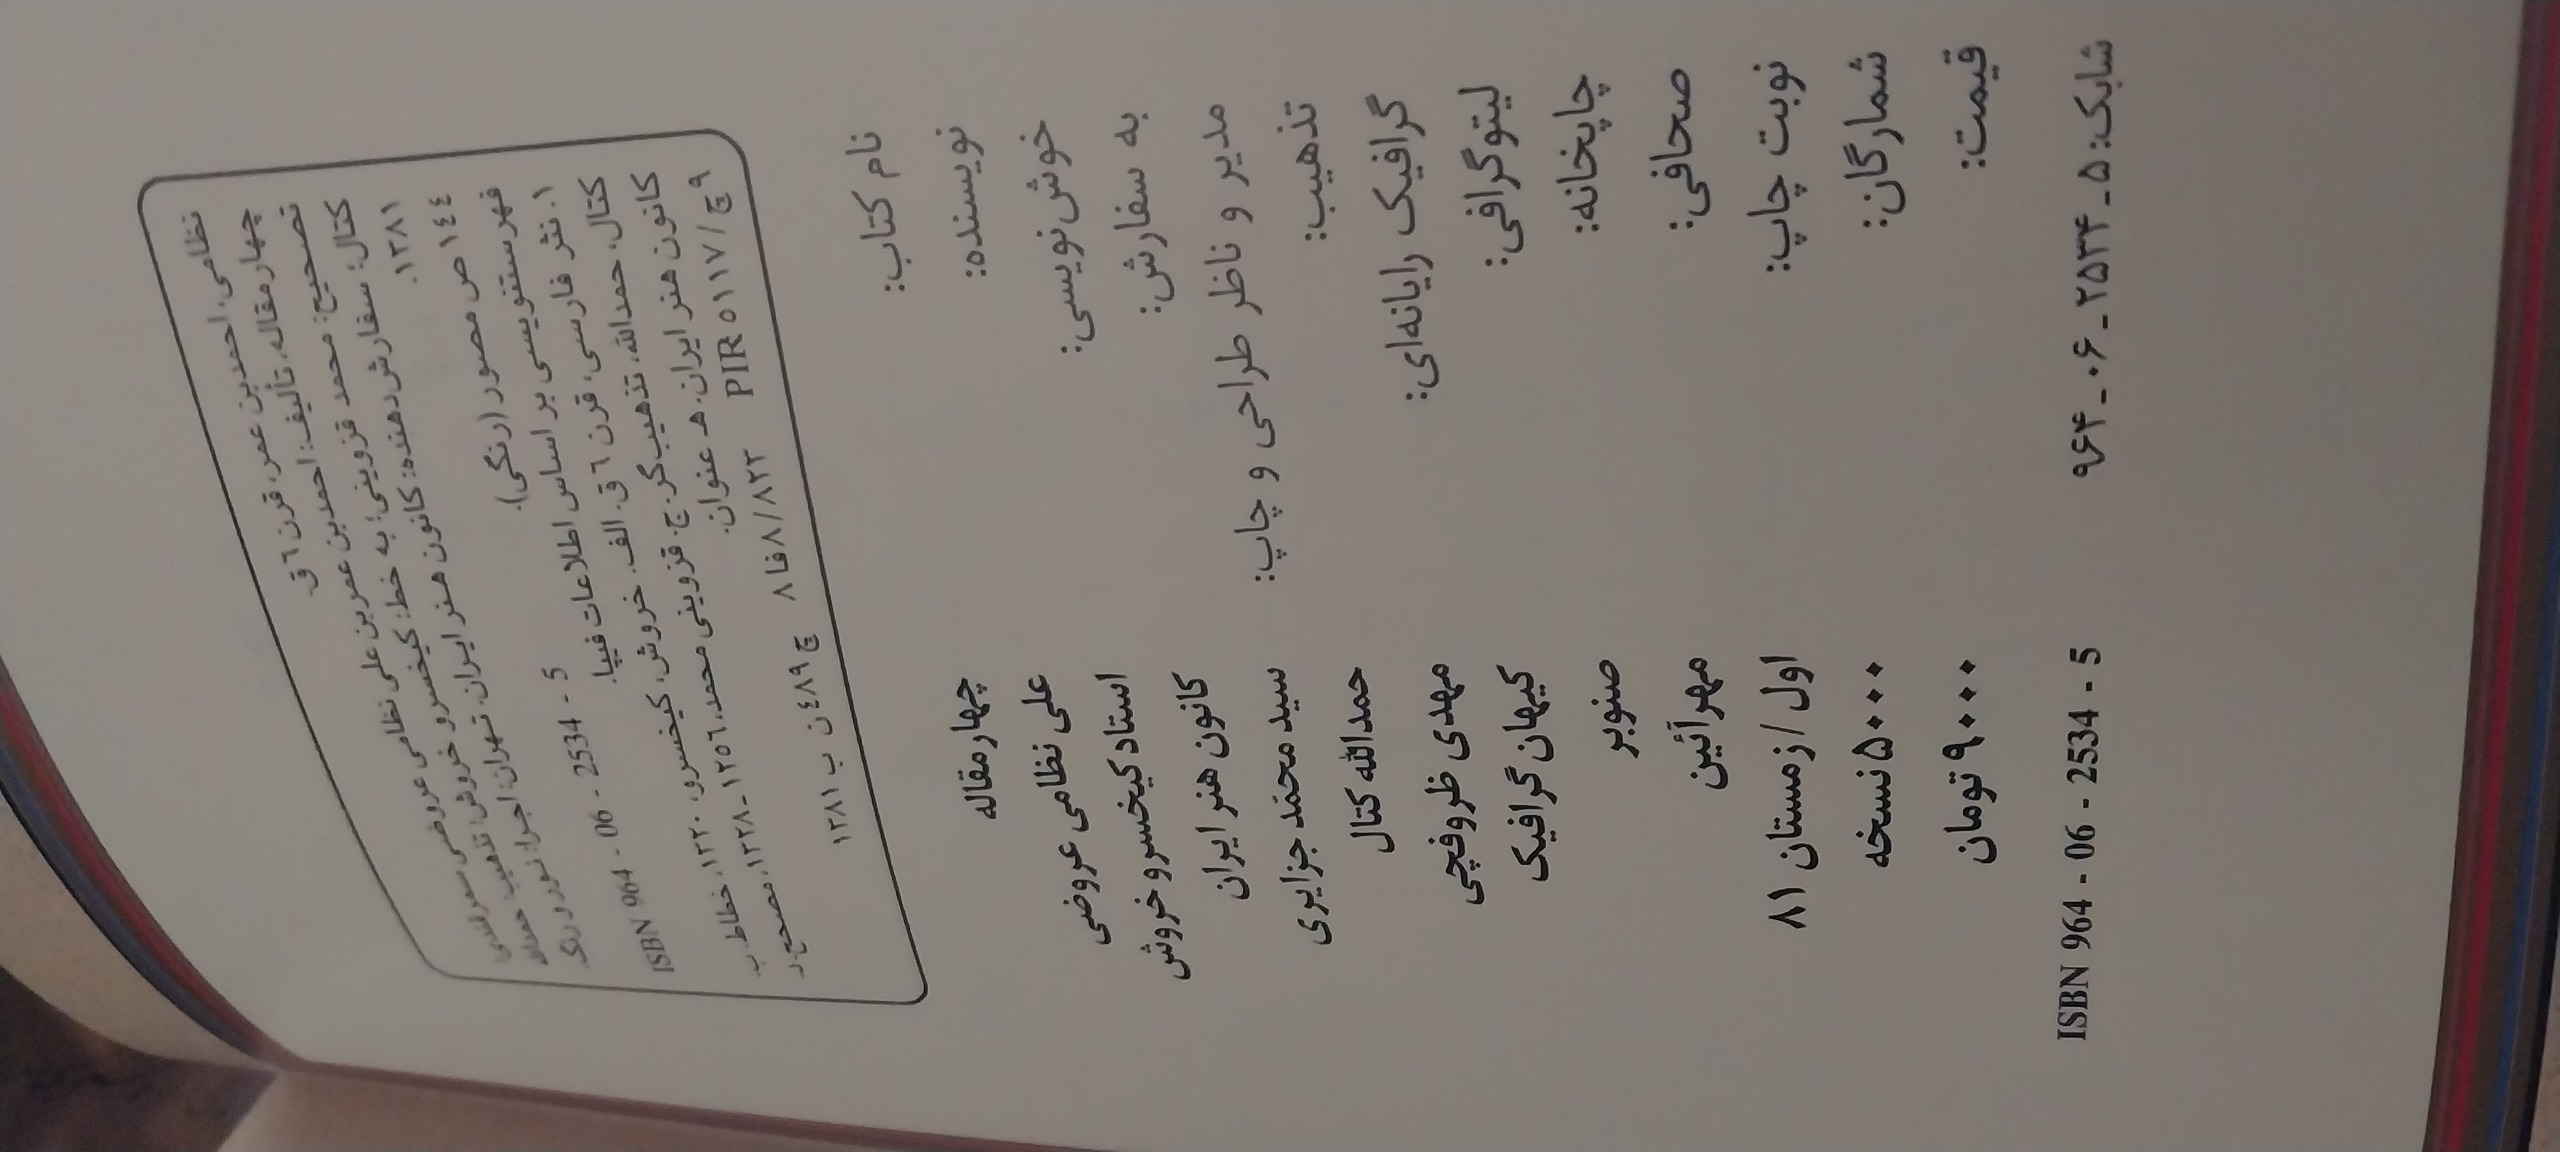 نظامی، احمدبن عمر، قرن ٦ ق.
چهار مقاله، تألیف: احمدبن عمربن علی نظامی عروضی سمرقندی
تصحیح: محمد قزوینی؛ به خط: کیخسرو خروش؛ تذهیب: حمداله
کتال؛ سفارش دهنده: کانون هنر ایران. تهران: اجرا: نور و رنگ
۱۳۸۱.
۱٤٤ ص مصور (رنگی).
ISBN 964 - 06 - 2534 - 5
فهرستنویسی بر اساس اطلاعات فیپا.
۱. نثر فارسی، قرن ٦ ق. الف. خروش، کیخسرو، ۱۳۲۰، خطاط. ب.
کتال، حمدالله، تذهیب‌گر. ج. قزوینی محمد، ۱۲۵٦-۱۳۲۸، مصحح. د.
کانون هنر ایران. هـ عنوان.
۹چ/PIR ٥۱۱۷ ۸فا۸/۸۲۳ چ٤۸۹ن ب ۱۳۸۱
نام کتاب: چهار مقاله
نویسنده: علی نظامی عروضی
خوش نویسی: استاد کیخسرو خروش
به سفارش: کانون هنر ایران
مدیر و ناظر طراحی و چاپ: سید محمّد جزایری
تذهیب: حمدالله کتال
گرافیک رایانه‌ای: مهدی ظروفچی
لیتوگرافی: کیهان گرافیک
چاپخانه: صنوبر
صحافی: مهرآئین
نوبت چاپ: اول / زمستان ۸۱
شمارگان: ۵۰۰۰ نسخه
قیمت: ۹۰۰۰ تومان
شابک: ۵ - ۲۵۳۴ - ۰۶ - ۹۶۴ ISBN 964 - 06 - 2534 - 5